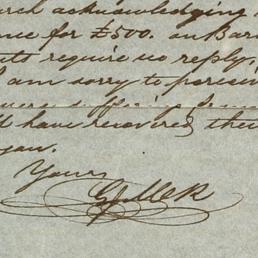 rch acknowledging
nce for £500. on Bar
uts require no reply,
I am sorry to perceive
have recovered the
you.
Yours